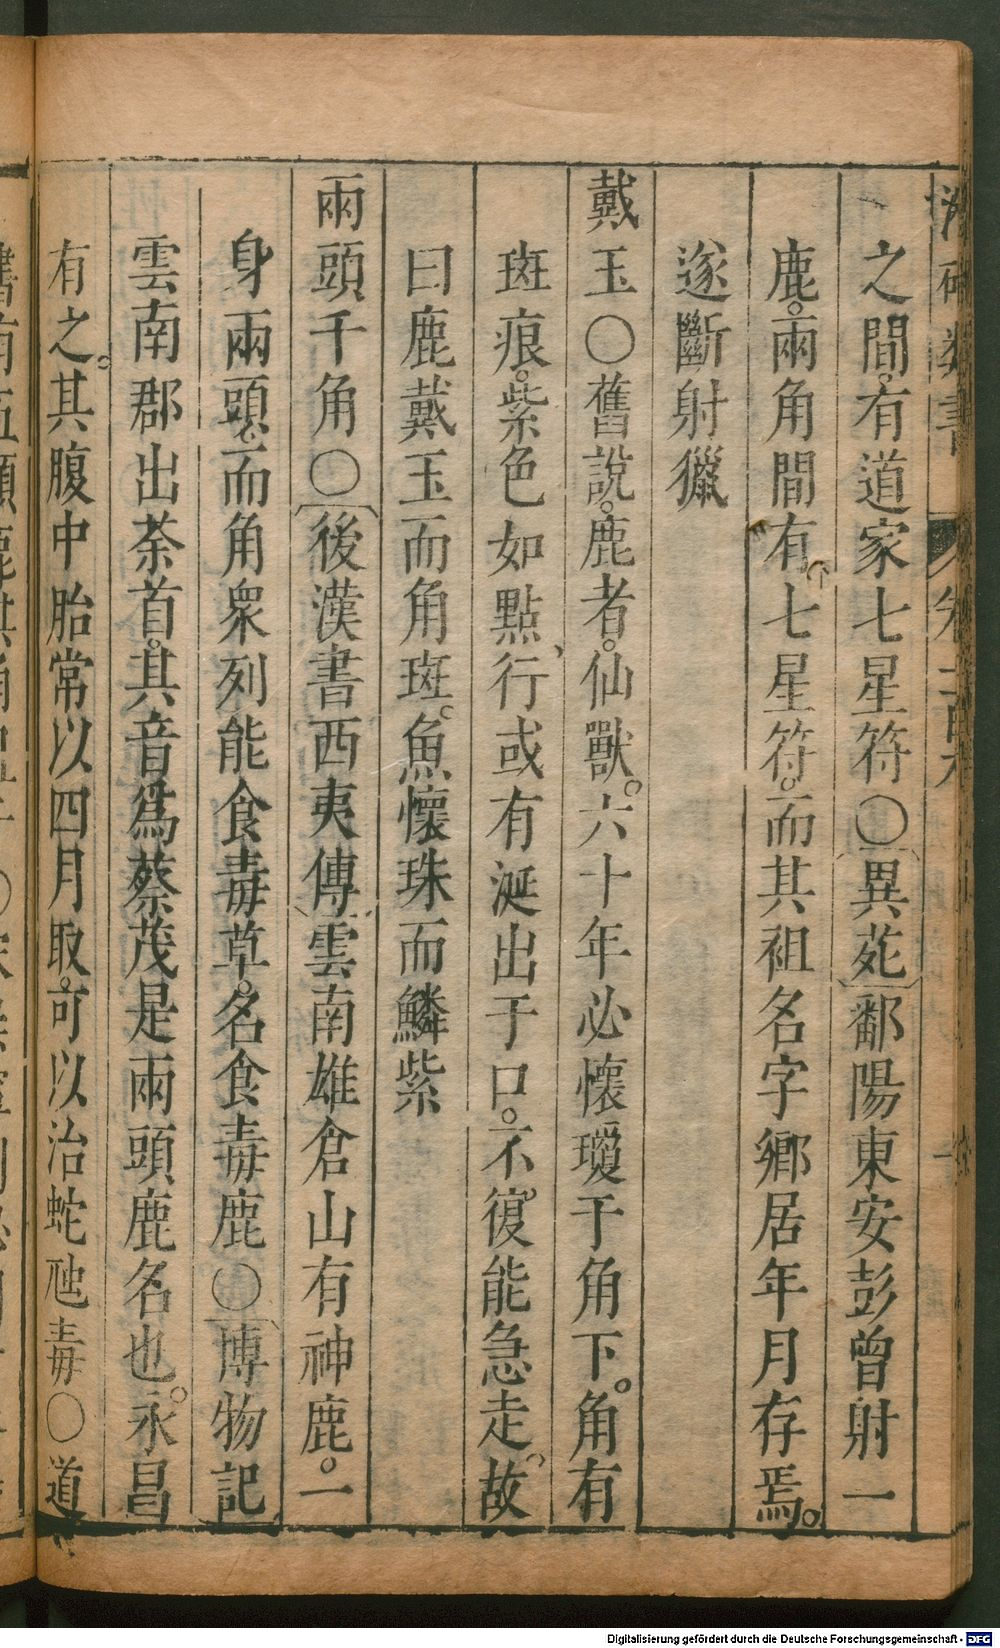 之間。有道家七星符〇異苑鄱陽東安彭曾射一
鹿。兩角間有七星符。而其祖名字鄉居年月存焉。
遂斷射獵
戴玉〇舊說。鹿者。仙獸。六十年必懷瓊于角下。角有
斑痕。紫色如點、行或有涎出于口。不復能急走。故
曰鹿戴玉而角斑。魚懷珠而鱗紫
兩頭千角〇後漢書西夷傳雲南雄倉山有神鹿。一
身兩頭。而角衆列能食毒草。名食毒鹿〇博物記
雲南郡出荼首。其音爲蔡茂是兩頭鹿名也。永昌
有之。其腹中胎常以四月取。可以治蛇虺毒〇道
Digitalisierung gefördert durch die Deutsche Forschungsgemeinschaft - DFG